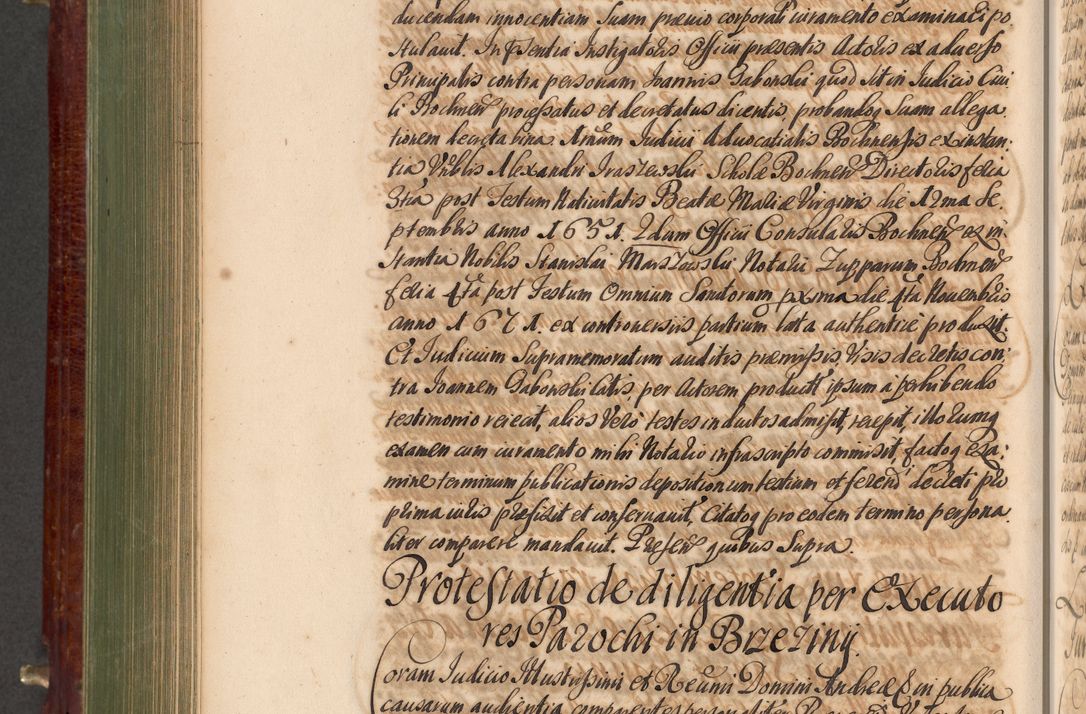 ducendam innocentiam Suam prævio corporali iuramento examinari po
stulavit. In Pñtentia Instigatoris Officii præsentis Actoris ex adverso
Principalis contra personam Joannis Gabonski quod sit in Judicio Civi
li Bochneñ processatus et decretatus dicentis, probandoq Suam allega
tionem decreta bina. Primum Judicii Advocatialis Bochnensis ex instan:
tia Nobilis Alexandri Scholæ Bochneñ Directoris feria
3tia post Festum Nativitatis Beatæ Mariæ Virginis die 12ma Se
ptembris anno 1651. 2dum Officii Consularis Bochneñ ex in
stantia Nobilis Stanislai Notarii Zupparum Bochneñ
feria 4ta post Festum Omnium Sanctorum pxma die 4ta Novembris
anno 1671. ex controversiis partium lata authentice produxit.
Et Judicium Supramemoratum auditis præmissis Visis decretis con:
tra Joannem Gabonski latis, per Actorem productis ipsum a perhibendo
testimonio reiecit, alios Vero testes inductos admisit, recepit, illorumq
examen cum iuramento mihi Notario infrascripto commisit, factoq exa:
mine terminum publicationis depositionum testium et ferend decreti pro
prima iuris præfixit et conservavit, Citatoq pro eodem termino persona
liter comparere mandavit. Preseñ quibus Supra.
Protestatio de diligentia per Executo
res Parochi in Brzeziny.
Coram Judicio Illustrissimi et Reverendissimi Domini Andreæ in publica
causarum audientia comparentes personaliter